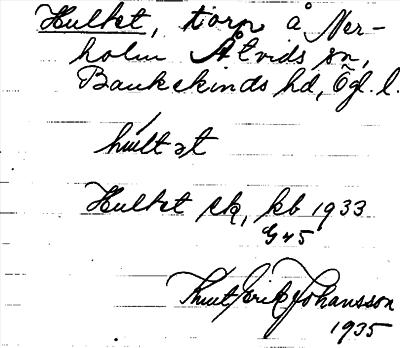 Hultet, torp å Ner-
holm Åtvids sn,
Bankekinds hd, Ögl. l.
húltət
Hultet sk, kb 1933
G45
Knut Erik Johansson
1935